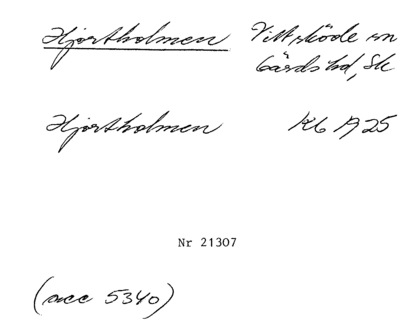 Hjortholmen Vittsköde sn
Gärds hd, Sk
Hjortholmen KB 1925
Nr 21307
(acc 5340)